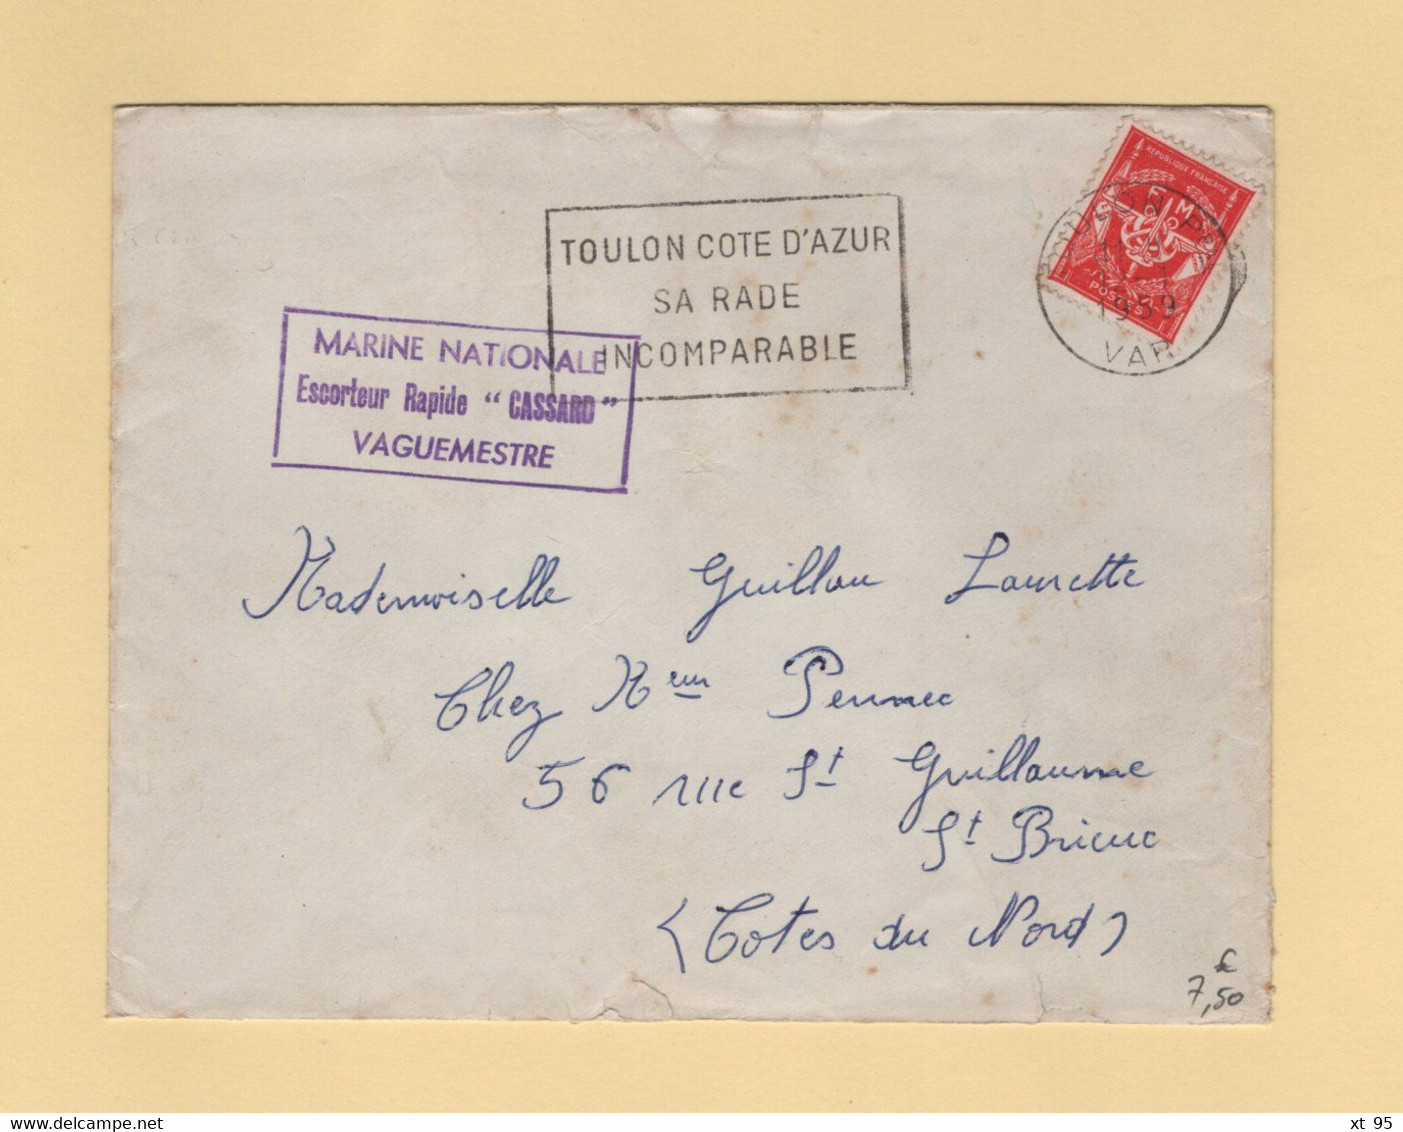 REPUBLIQUE FRANÇAISE
F M
POSTES
1959
VAR
TOULON COTE D'AZUR
SA RADE
INCOMPARABLE
MARINE NATIONALE
Escorteur Rapide "CASSARD"
VAGUEMESTRE
Mademoiselle Guillou Laurette
Chez Mr Pennec
56 rue St Guillaume
St Brieuc
(Cotes du Nord)
€
7,50
xt 95